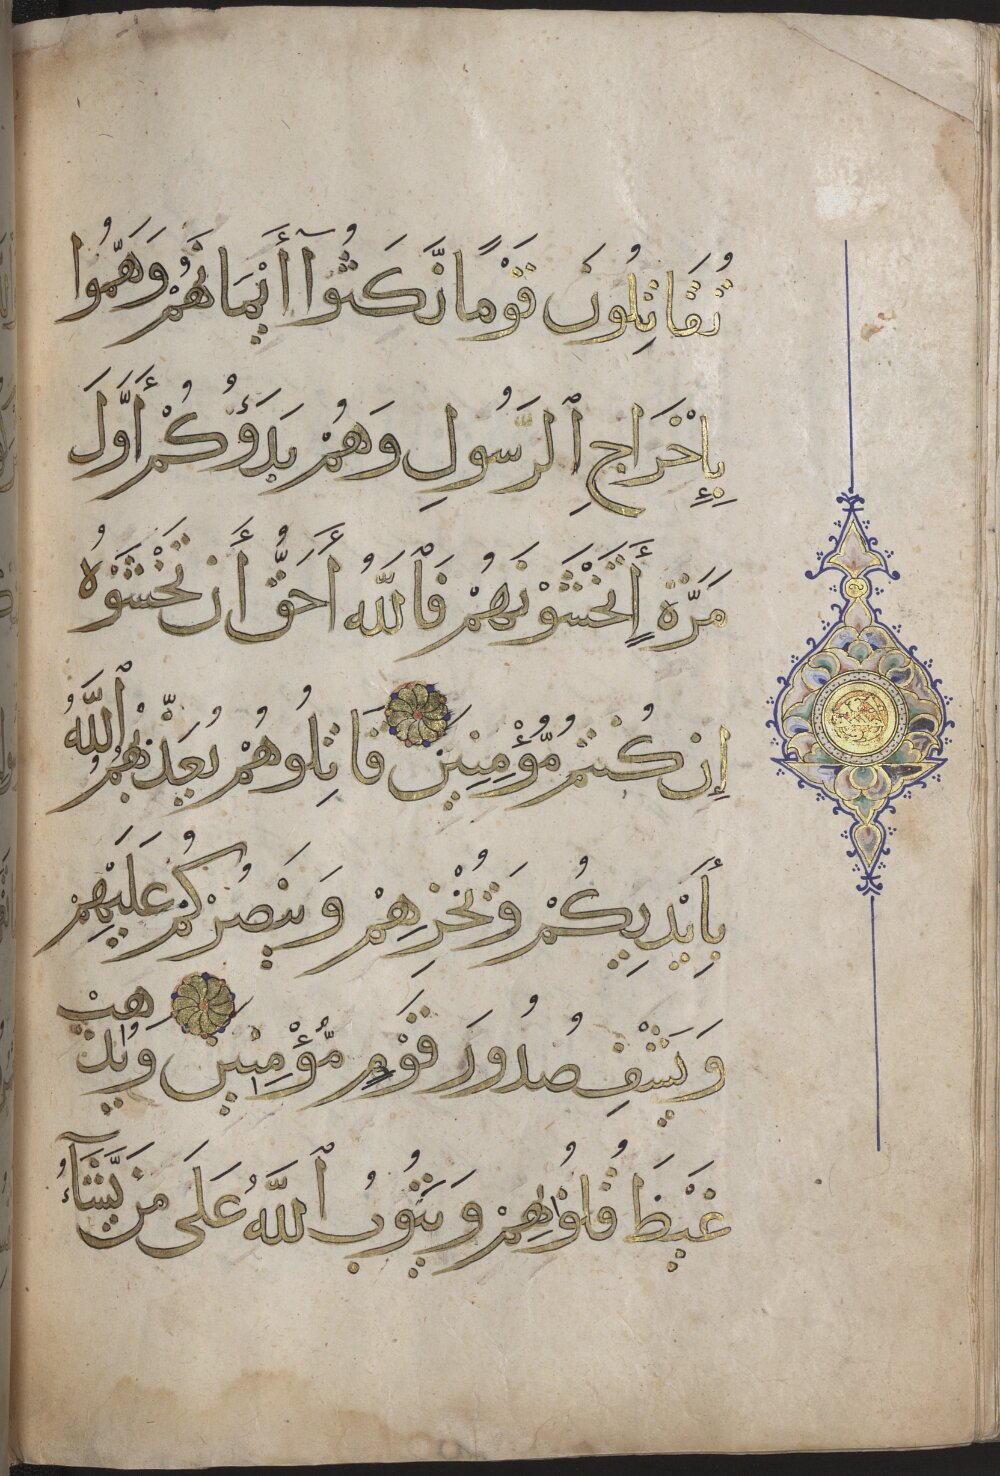 تُقَاتِلُونَ قَوْمًا نَّكَثُوٓا أَيْمَانَهُمْ وَهَمُّوا
بِإِخْرَاجِ ٱلرَّسُولِ وَهُمْ بَدَؤُكُمْ أَوَّلَ
مَرَّةٍ أَتَخْشَوْنَهُمْ فَٱللَّهُ أَحَقُّ أَن تَخْشَوْهُ
إِن كُنتُم مُّؤْمِنِينَ قَاتِلُوهُمْ يُعَذِّبْهُمُ ٱللَّهُ
بِأَيْدِيكُمْ وَيُخْزِهِمْ وَيَنصُرْكُمْ عَلَيْهِمْ
وَيَشْفِ صُدُورَ قَوْمٍ مُّؤْمِنِينَ وَيُذْهِبْ
غَيْظَ قُلُوبِهِمْ وَيَتُوبُ ٱللَّهُ عَلَى مَن يَّشَآءُ